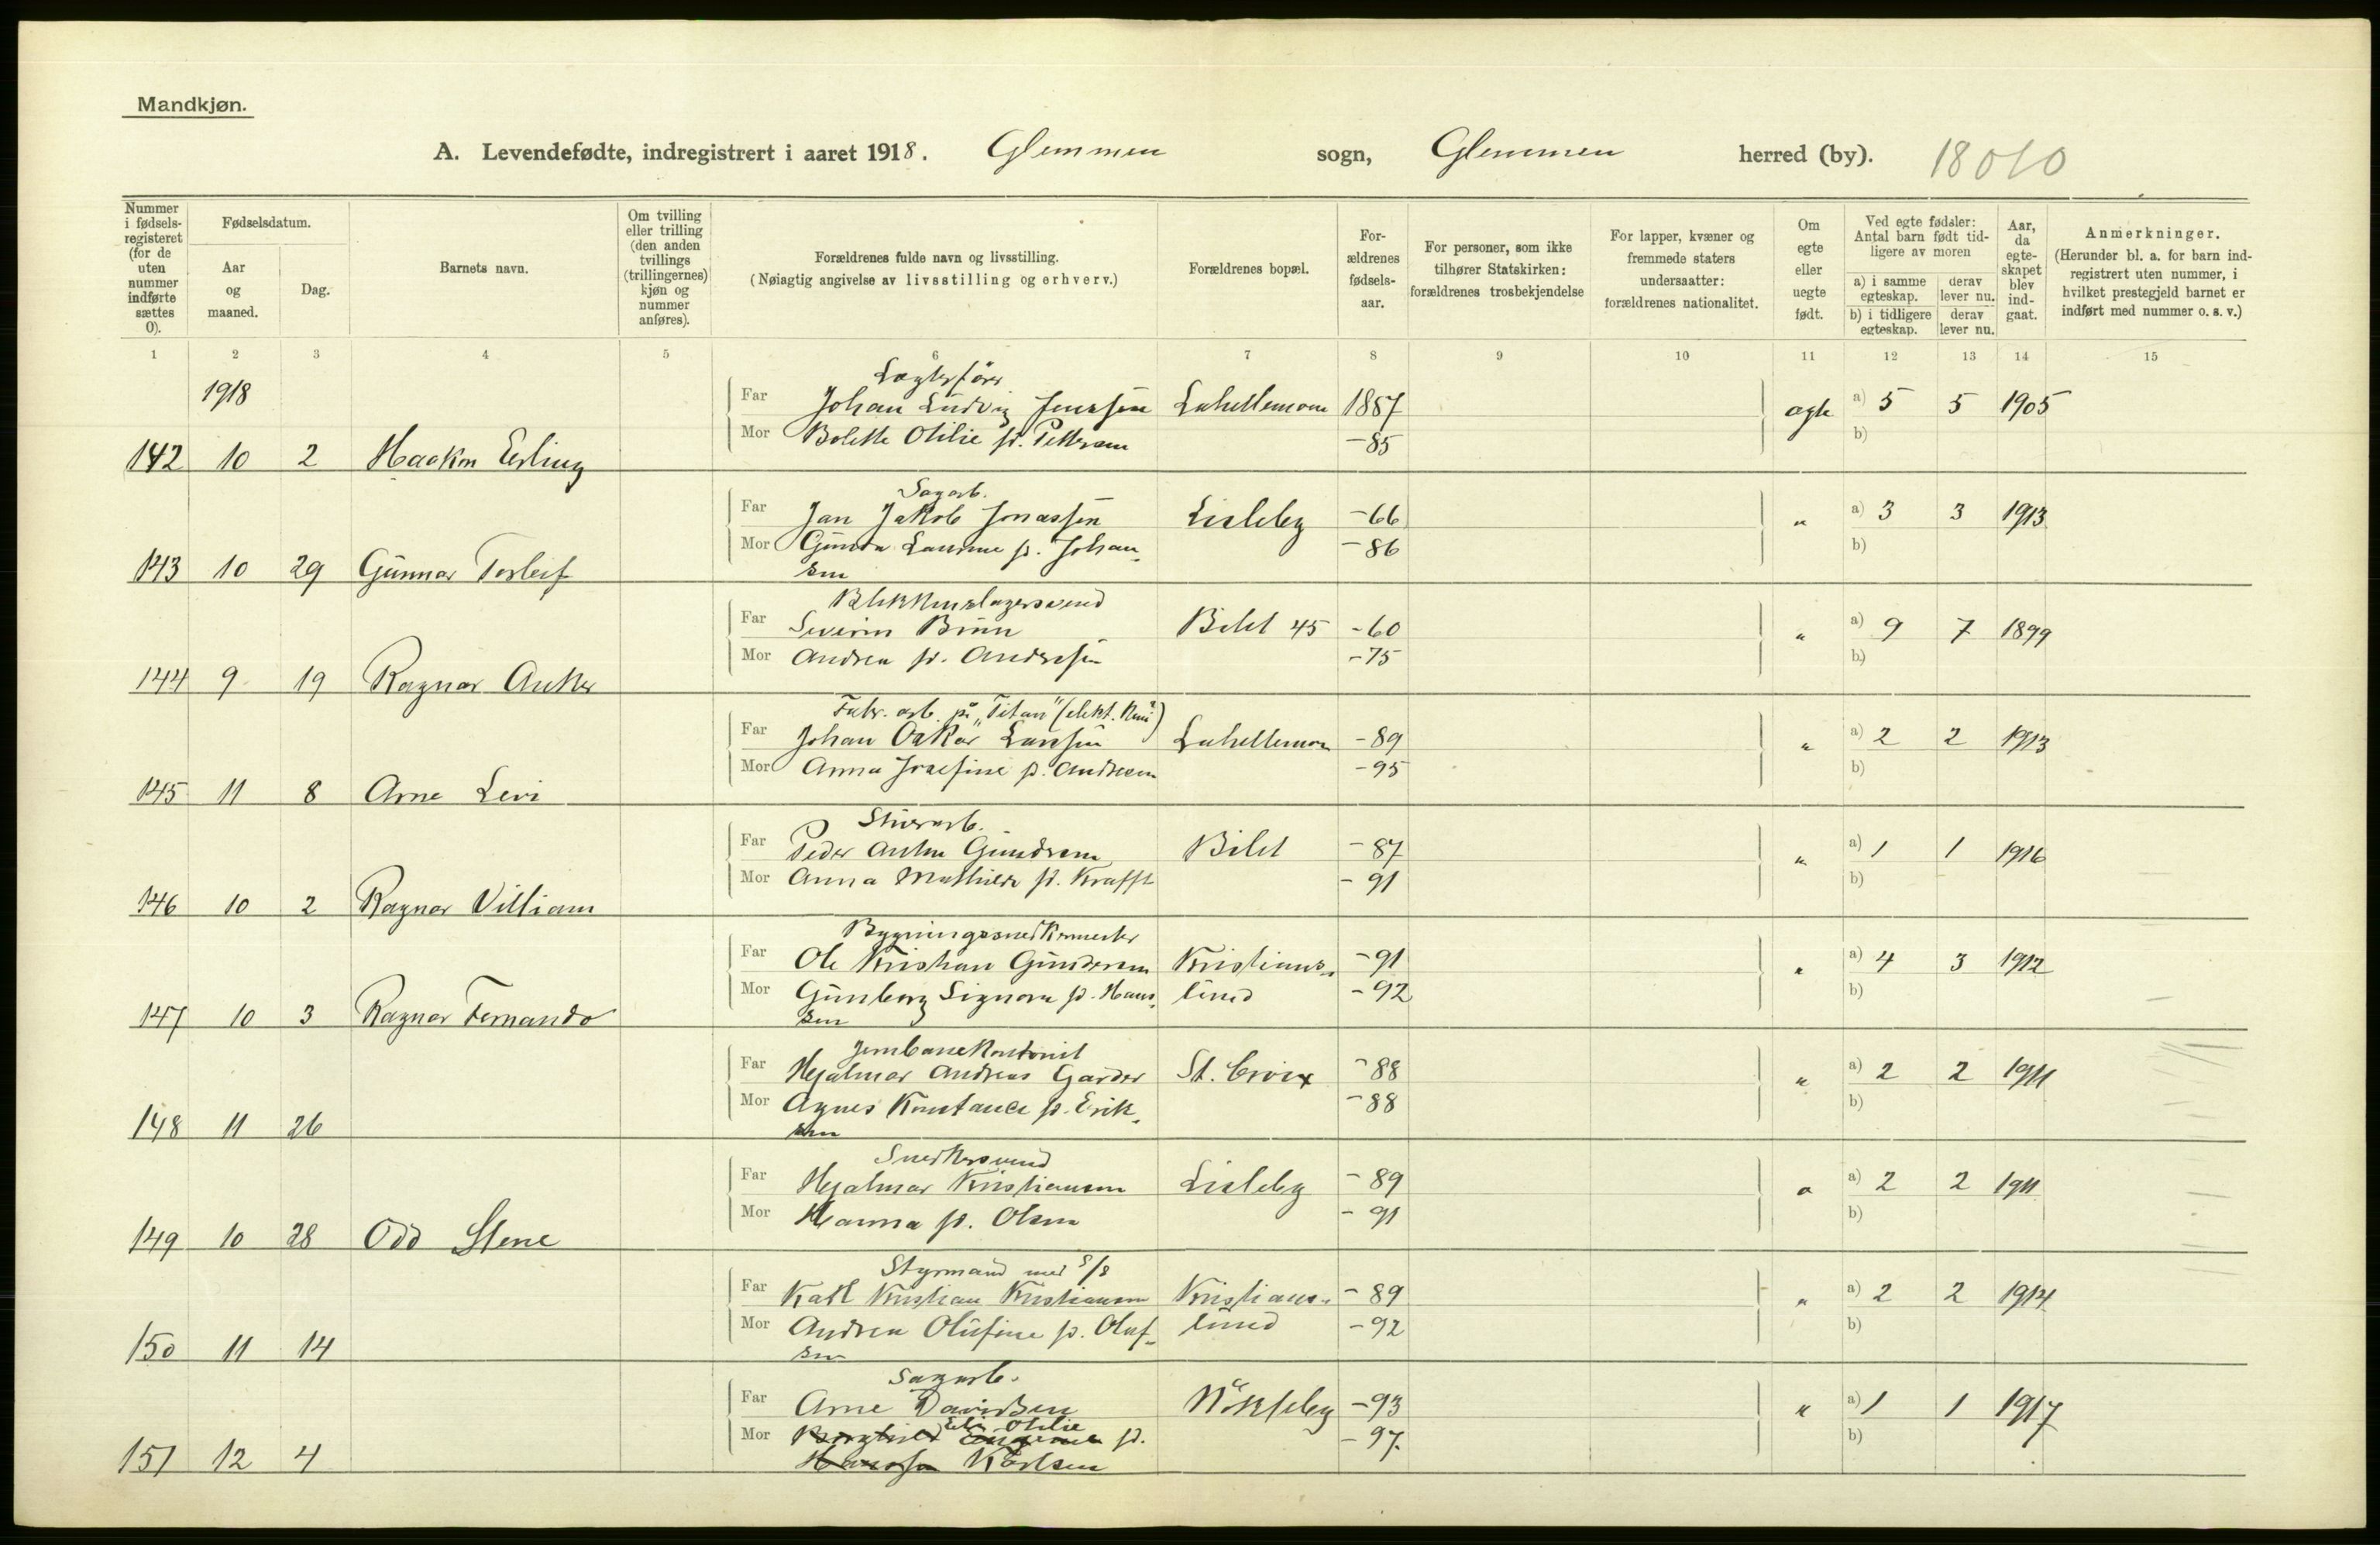 Mandkjøn.
A. Levendefødte, indregistrert i aaret 1918. Glemmen sogn, Glemmen herred (by). 18010
Nummer i fødsels-registeret (for de uten nummer indførte sættes 0).
Fødselsdatum.
Aar og maaned.
Dag.
Barnets navn.
Om tvilling eller trilling (den anden tvillings (trillingernes) kjøn og nummer anføres).
Forældrenes fulde navn og livsstilling.
(Nøiagtig angivelse av livsstilling og erhverv.)
Forældrenes bopæl.
For-ældrenes fødsels-aar.
For personer, som ikke tilhører Statskirken: forældrenes trosbekjendelse
For lapper, kvæner og fremmede staters undersaatter: forældrenes nationalitet.
Om egte eller uegte født.
Ved egte fødsler: Antal barn født tid-ligere av moren
a) i samme egteskap.
derav lever nu.
b) i tidligere egteskap.
derav lever nu.
Aar, da egte-skapet blev ind-gaat.
Anmerkninger.
(Herunder bl. a. for barn ind-registrert uten nummer, i hvilket prestegjeld barnet er indført med nummer o. s. v.)
1 2 3 4 5 6 7 8 9 10 11 12 13 14 15
1918
Lægterfører
Far Johan Ludvig Jensen 1887 a) 5 5 1905
Mor Bolette Otilie f. Pettersen -85 b)
142 10 2 Haakon Erling
Sagarb.
Far Jan Jakob Jonassen Lisleby -66 " a) 3 3 1913
Mor Gunda f. Johan- -86 b)
sen
143 10 29 Gunnar Torleif
Blikkenslagersvend
Far Severin Bilet 45 -60 " a) 9 7 1899
Mor Andrea f. Andresen -75 b)
144 9 19 Ragnar Anker
Fabr. arb. på "Titan"
Far Johan Oskar -89 " a) 2 2 1913
Mor Anna Josefine f. Andresen -95 b)
145 11 8 Arne Levi
Stuerarb.
Far Peder Anton Gundersen Bilet -87 " a) 1 1 1916
Mor Anna Mathilde f. Krafft -91 b)
146 10 2 Ragnar Villiam
Bygningssnedkermester
Far Ole Kristian Gundersen Kristians- -91 " a) 4 3 1912
Mor Gunborg Signora f. Hans- lund -92 b)
sen
147 10 3 Ragnar Fernando
Jernbanekontorist
Far Hjalmar Andreas Garder St. Croix -88 " a) 2 2 1911
Mor Agnes Konstance f. Erik- -88 b)
sen
148 11 26
Snedkersvend
Far Hjalmar Kristiansen Lisleby -89 " a) 2 2 1911
Mor Hanna f. Olsen -91 b)
149 10 28 Odd Stene
Styrmand med S/S
Far Karl Kristian Kristiansen Kristians- -89 " a) 2 2 1914
Mor Andrea Olufine f. Oluf- lund -92 b)
sen
150 11 14
Sagarb.
Far Arne Davidsen Nøkleby -93 " a) 1 1 1917
Otilie
Mor Borghild f. -97 b)
Hansen Karlsen
151 12 4